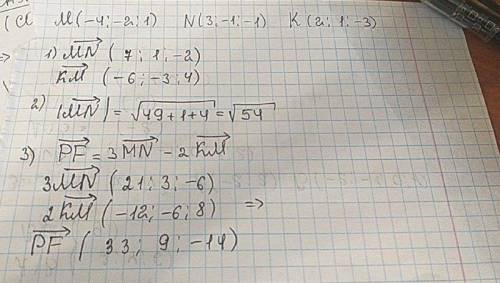 M(-4; -2; 1) N(3; -1; -1) K(2; 1; -3)
1) MN (7; 1; -2)
KM (-6; -3; 4)
2) |MN| = √49+1+4 = √54
3) PF = 3MN - 2KM
3MN (21; 3; -6)
2KM (-12; -6; 8) =>
PF (33; 9; -14)